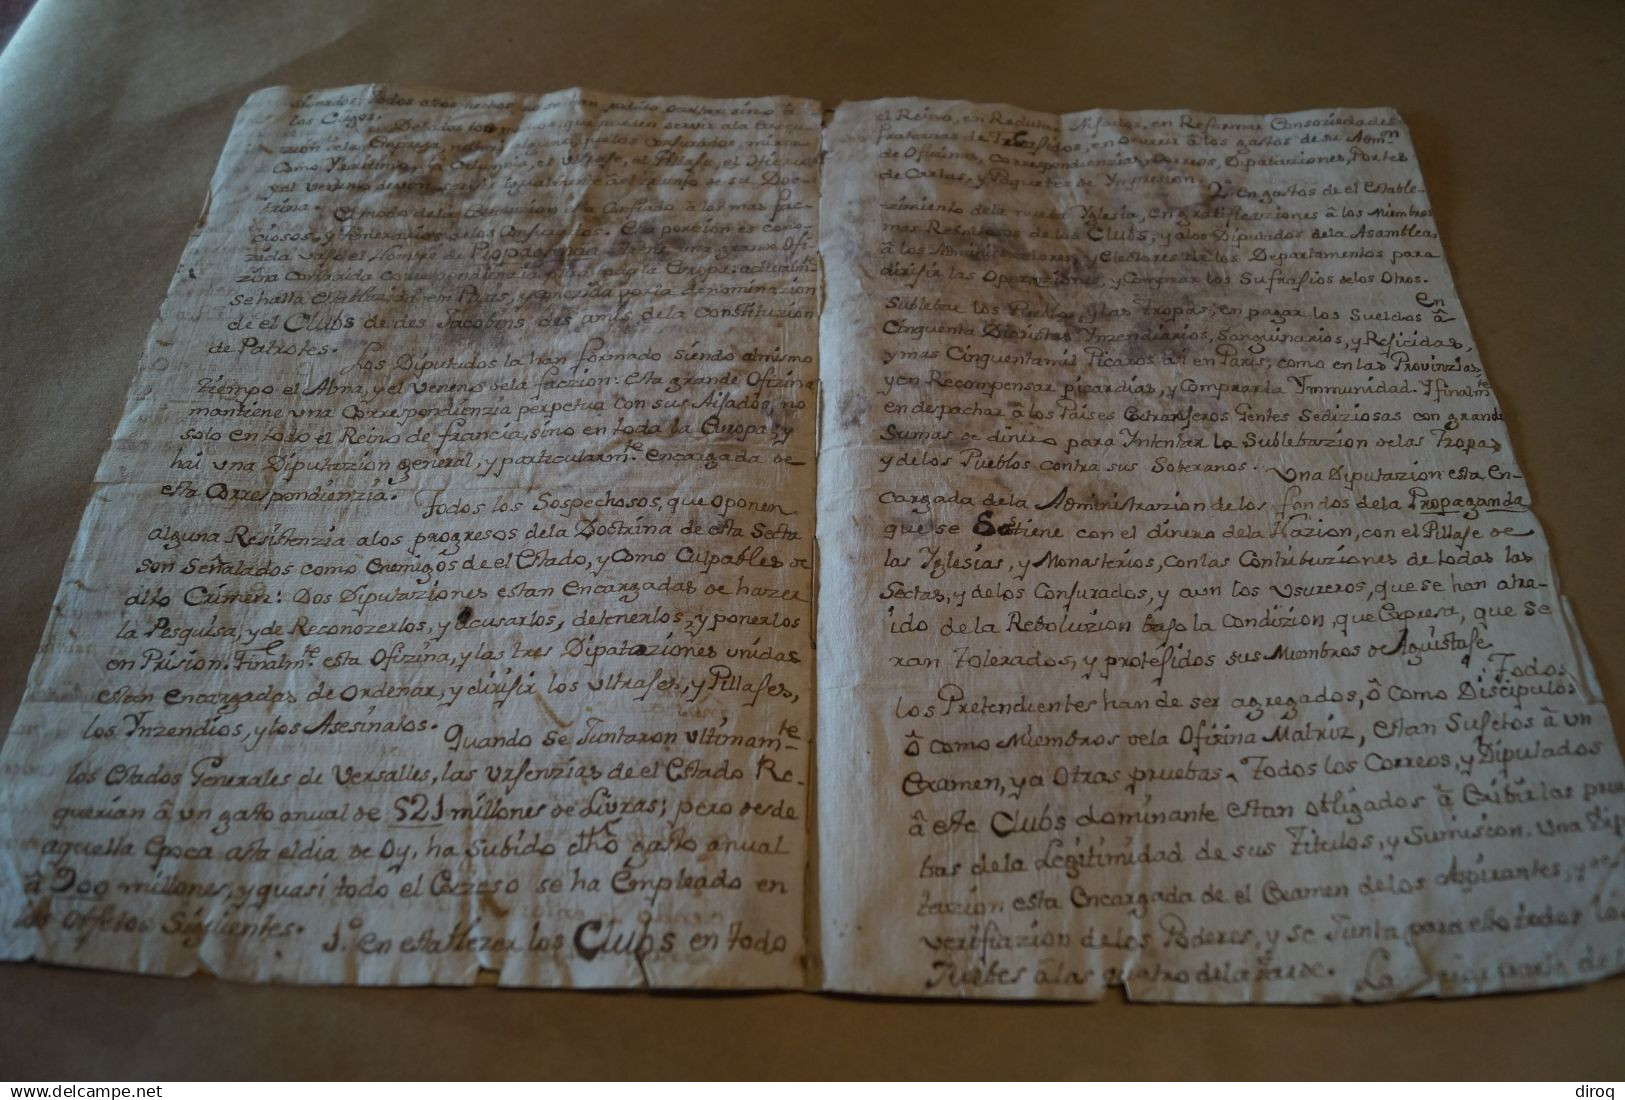 Todos estos hechos no se han podido ocultar sino â
los Ciegos.
De todos los medios, que pueden servir ala
de la Empresa, los Conjurados, miran
Como la Calumnia, el Ultraje, el Pillaje, el
y el Veneno deven servir igualmente al triunfo de su Doc-
trina.
El modo de la esta Confiado â los mas fac-
ciosos, y de los Conjurados. Esta porcion es cono-
zida vajo el Nombre de Propaganda tiene una grande Ofi-
zina Conozida correspondienzia toda la Europa: actualmte
se halla establezida en Paris, y conozida por la denominazion
de el Clubs de des Jacobins des amis dela Constituzion
de Patrotes.
Los Diputados la han formado siendo al mismo
tiempo el Alma, y el Veneno dela faczion: Esta grande Ofizina
mantiene una Correspondienzia perpetua con sus Aijados, no
solo en todo el Reino de francia, sino en toda la Europa, y
hai una Diputazion general, y particularmte encargada de
esta Correspondienzia.
Todos los Sospechosos, que oponen
alguna Resistenzia alos progresos dela Doctrina de esta Secta
son Señalados como Enemigos de el Estado, y Como Culpables de
alto Crimen: Dos Diputaziones estan encargadas de hazer
la Pesquisa, y de Reconozerlos, y acusarlos, detenerlos, y ponerlos
en Prision. Finalmte esta Ofizina, y las tres Diputaziones unidas
estan encargadas de Ordenar, y dirijir los Ultrajes, y Pillajes,
los Ynzendios, y los Asesinatos.
Quando se Juntaron ultimamte
los Estados Generales de Versalles, las urjenzias de el Estado Re-
querian â un gasto anual de 521 millones de Livras; pero desde
aquella Epoca asta el dia de Oy, ha subido dho gasto anual
â 900 millones, y quasi todo el Exzeso se ha Empleado en
los Obgetos Siguientes.
1.º en establezer los Clubs en todo
el Reino, en Reclutar Aijados, en Reformar Consoziedades
fraternas de en Ocurir â los gastos de su Admn
de Ofizinas, Correspondienzias, y Correos, Diputaziones, Portes
de Cartas, y Paquetes de Ympresion.
2.º en gastos de el Estable-
zimiento dela nueva Yglesia, en gratificaziones â los Miembros
mas Reboltosos de los Clubs, y alos Diputados dela Asamblea,
â los Administradores, y Electores de los Departamentos para
dirijir las Operaziones, y Comprar los Sufrajios delos Otros.
en
Sublebar los Pueblos, y las Tropas, en pagar los Sueldos â
Cinquenta Ynzendiarios, Sanguinarios, y Rejicidas,
y mas Cinquenta mil Picaros asi en Paris, como en las Provinzias,
y en Recompensar picardias, y Comprarla Ymmunidad. Y finalmte
en despachar â los Paises Extranjeros Gentes Sediziosas con grandes
Sumas de dinero para Yntentar la Sublebazion delas Tropas
y delos Pueblos contra sus Soberanos.
Una Diputazion esta En-
cargada dela Administrazion delos fondos dela Propaganda
que se Sostiene con el dinero dela Nazion, con el Pillaje de
las Yglesias, y Monasterios, con las Contribuziones de todas las
Sectas, y delos Conjurados, y aun los Usureros, que se han atra-
ido de la Reboluzion bajo la Condizion, que Expresa, que se
ran Tolerados, y protejidos sus Miembros de Aguistaje
Todos
los Pretendientes han de ser agregados, ô como Discipulos,
ô como Miembros dela Ofizina Matriz, estan Sujetos â un
Examen, y a Otras pruebas. Todos los Correos, y Diputados
â este Clubs dominante estan obligados â Exibir las prue
bas dela Legitimidad de sus Titulos, y Sumision. Una Dip
tazion esta Encargada de el Examen delos Aspirantes, y de
verifiazion delos Poderes, y se Junta para ello todos los
Juebes â las quatro dela tarde. La parte de